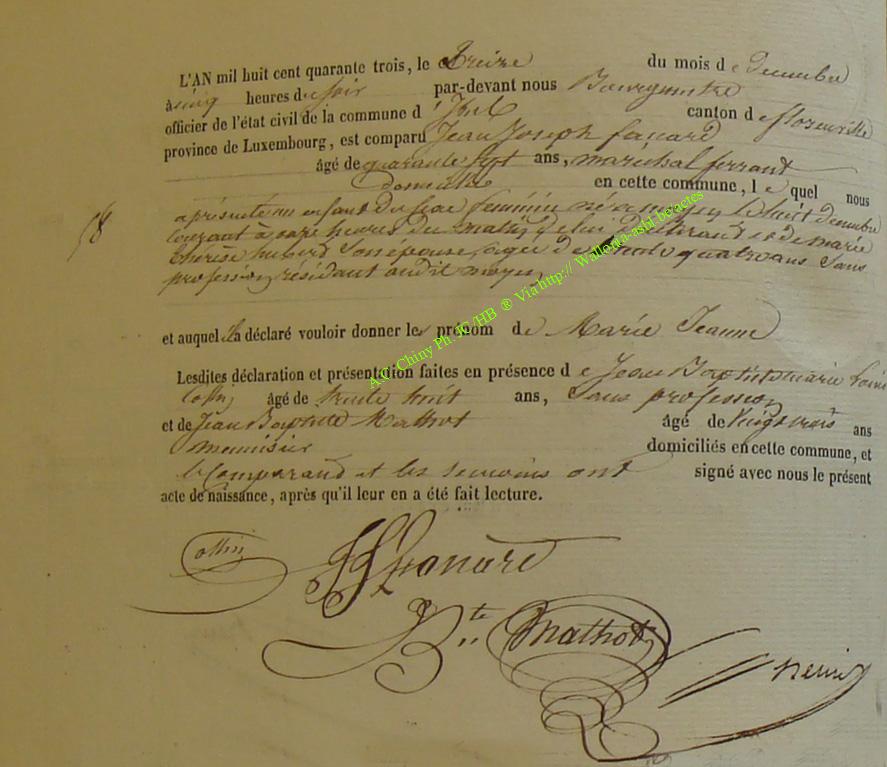 L'AN mil huit cent quarante trois, le treize du mois de Decembre
à cinq heures du soir par-devant nous Bourgmestre
officier de l'état civil de la commune d' Izel canton de florenville
province de Luxembourg, est comparu Jean Joseph fanard
âgé de quarante sept ans, maréchal ferrant
domicilié en cette commune, le quel nous
58
a présenté un enfant du sexe feminin né a moyen le huit decembre
courant à onze heures du matin, de lui declarand et de marie
therèse hubert son épouse, agée de trente quatre ans sans
profession, résidant audit moyen
et auquel il a déclaré vouloir donner les prénom de Marie Jeanne
Lesdites déclaration et présentation faites en présence de Jean Baptiste marie
Collin âgé de trente huit ans, Sans profession
et de Jean Baptiste Mathot âgé de Vingt trois ans
menuisier domiciliés en cette commune, et
le Comparand et les temoins ont signé avec nous le présent
acte de naissance, après qu'il leur en a été fait lecture.
Collin
JJ fanard
J Bte Mathot
A.C. Chiny Ph. JC/HB ® Via http:// Wallonia-asbl.be/actes